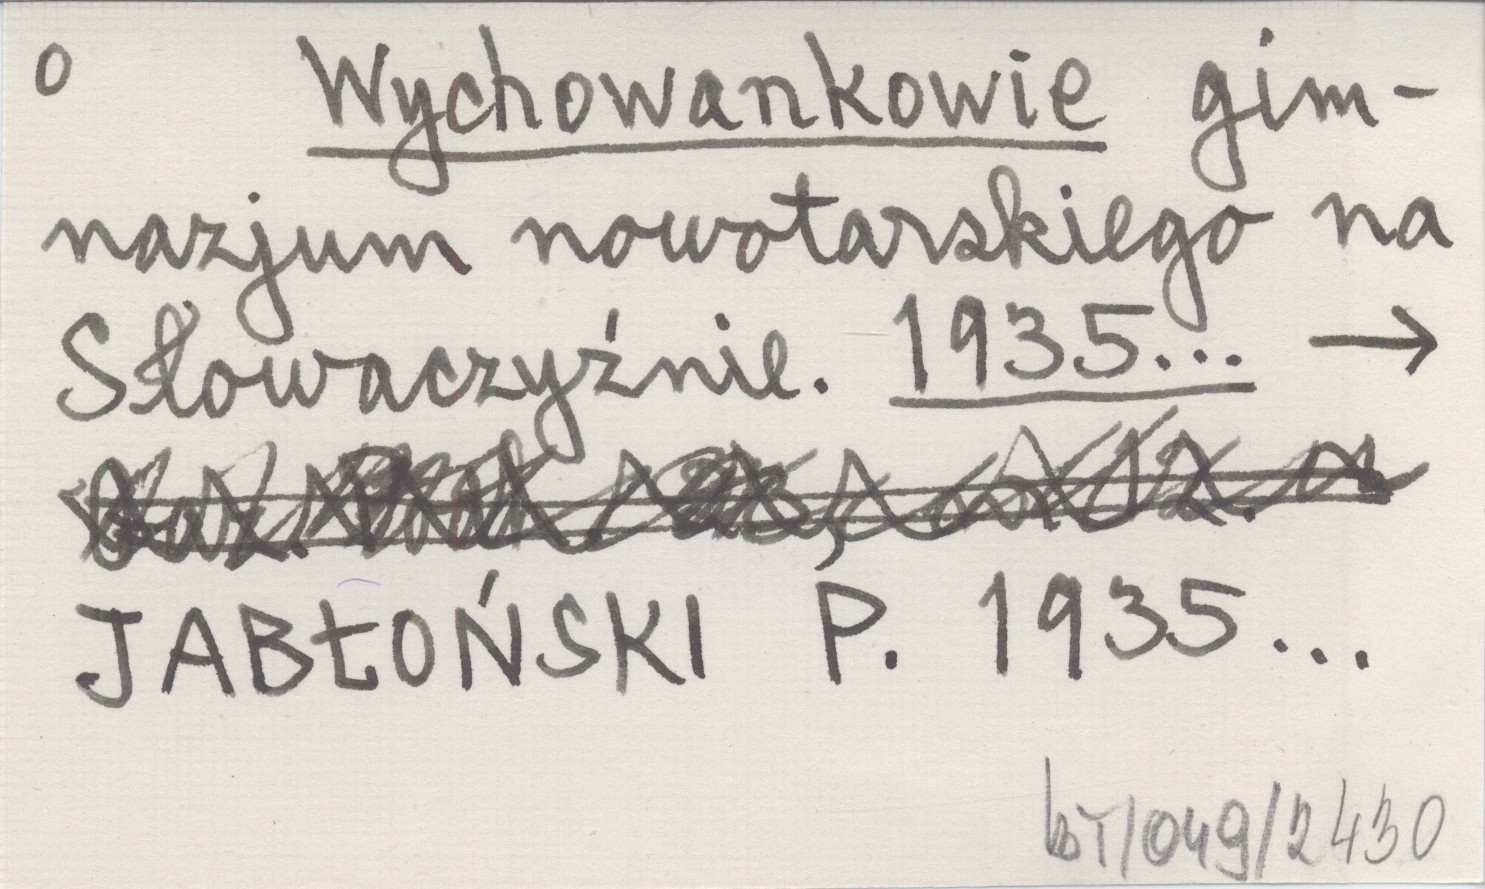 o Wychowankowie gim-
nazjum nowotarskiego na
Słowaczyźnie. 1935... →
JABŁOŃSKI P. 1935...
bT/049/2430